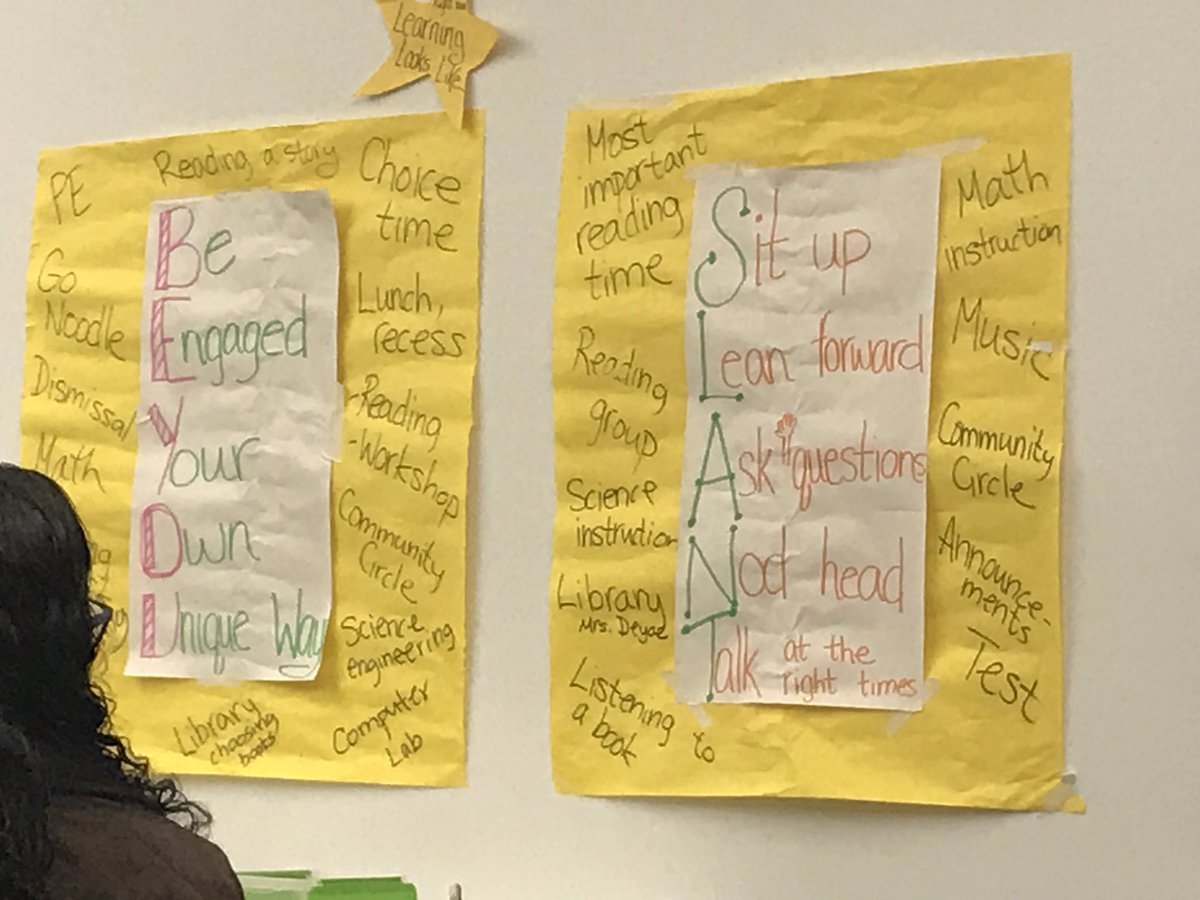 Learning
Looks Like
PE
Go
Noodle
Dismissal
Math
Reading a story
Be
Engaged
Your
Own
Unique Way
Choice
time
Lunch,
recess
-Reading
-Workshop
Community
Circle
Science
engineering
Computer
Lab
Library
choosing
books
Most
important
reading
time
Reading
group
Science
instruction
Library
Mrs. Deyoe
Listening to
a book
Sit up
Lean forward
Ask questions
Nod head
Talk at the
right times
Math
instruction
Music
Community
Circle
Announce-
ments
Test